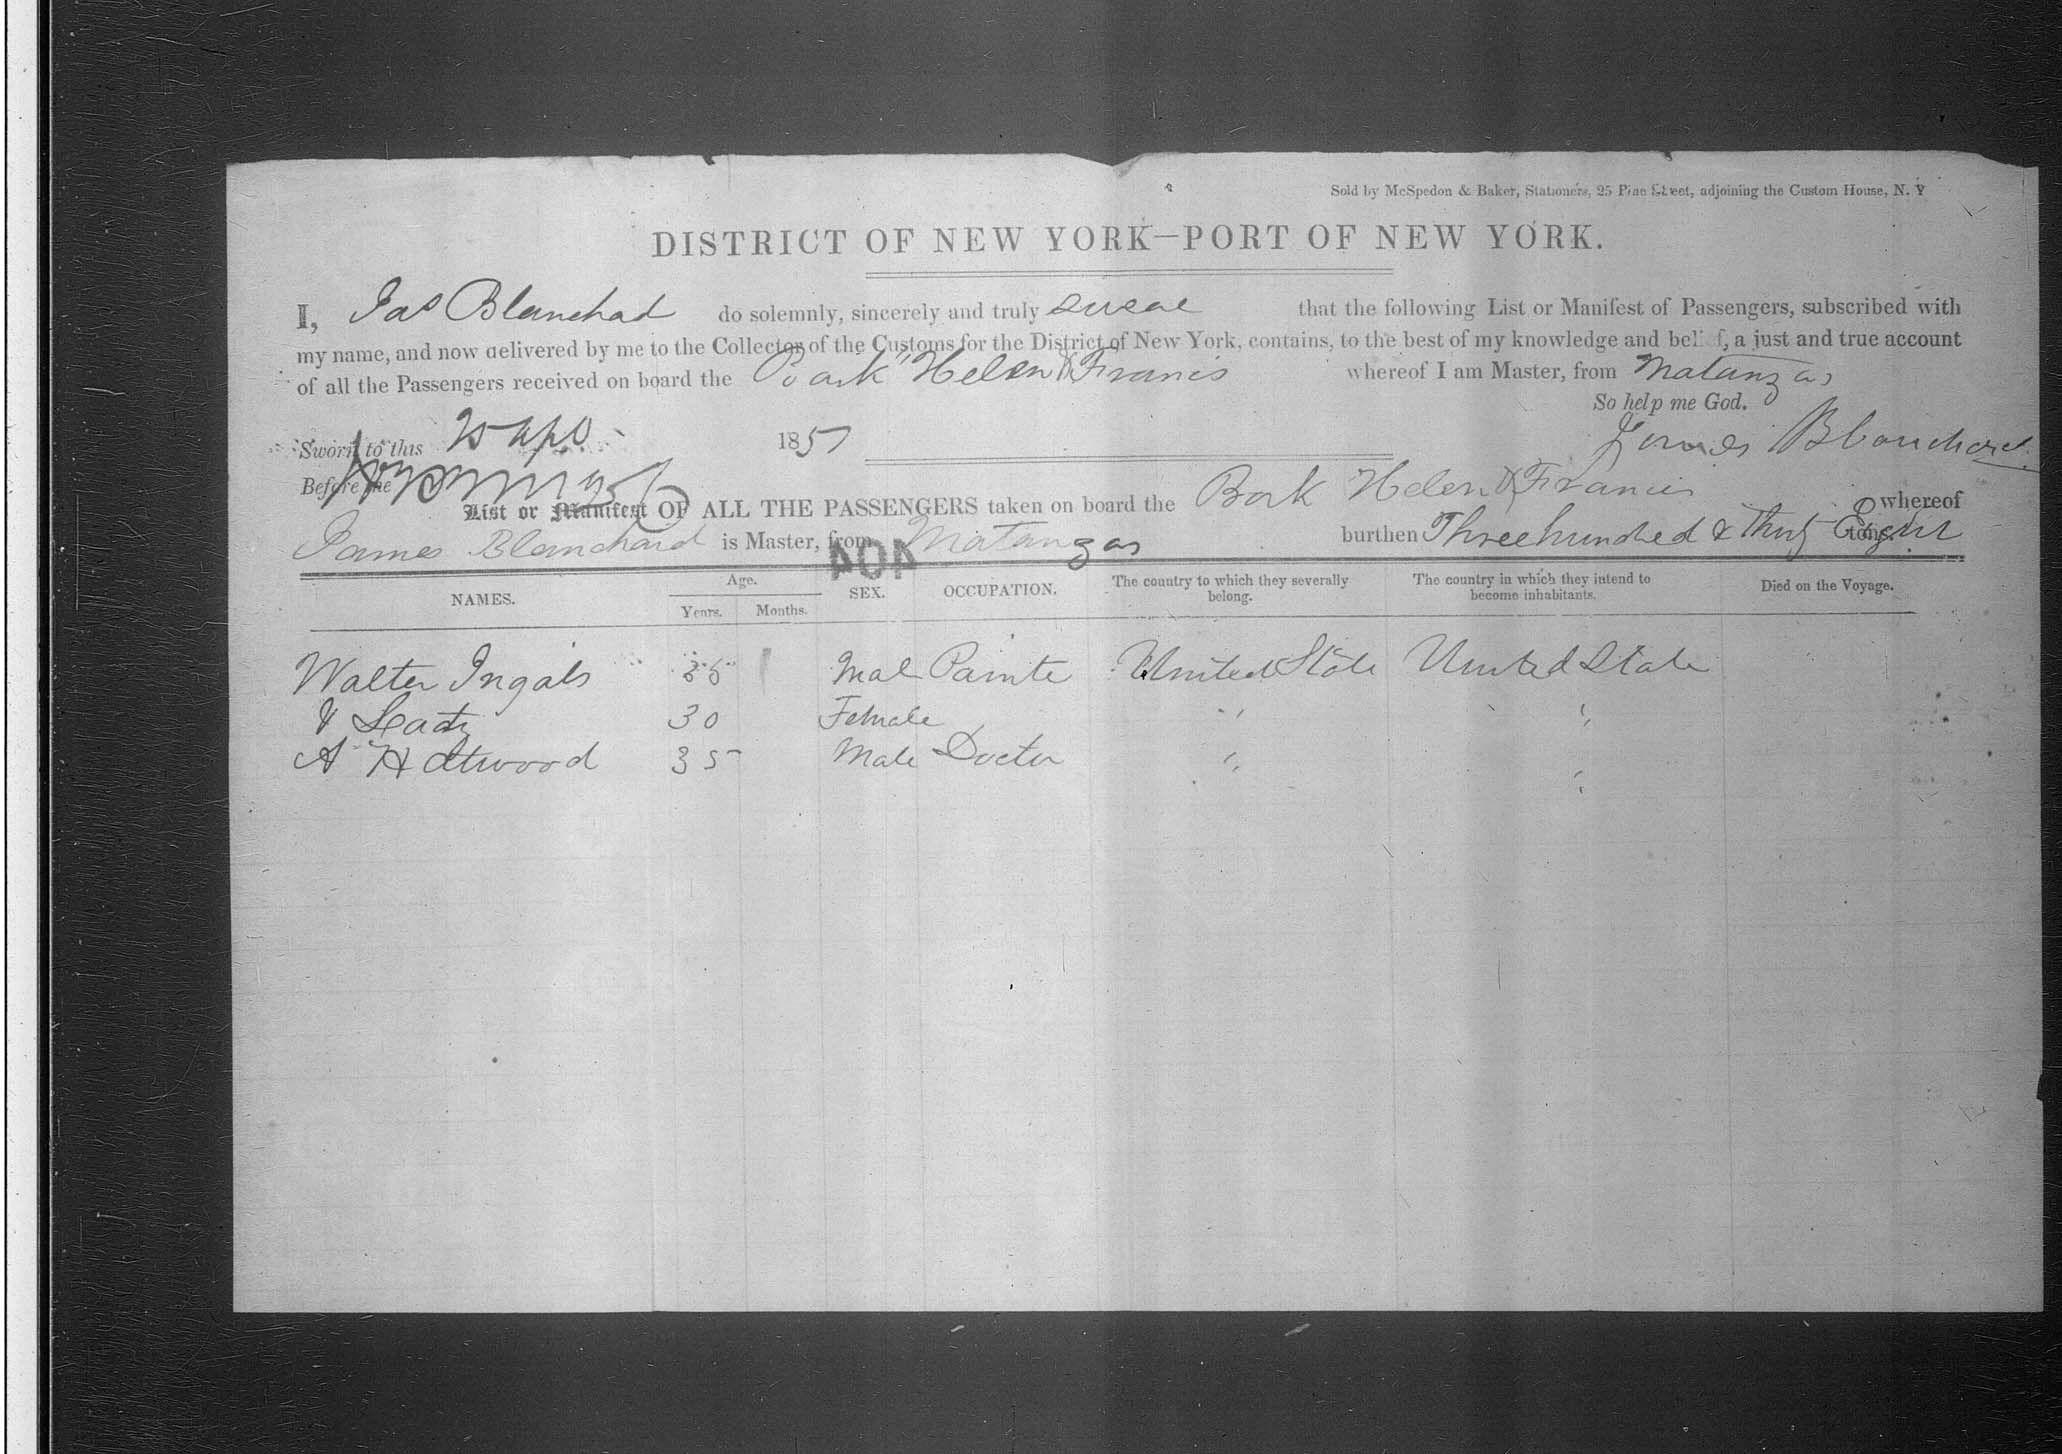 Sold by McSpedon & Baker, Stationers, 25 Pine Street, adjoining the Custom House, N. Y
DISTRICT OF NEW YORK—PORT OF NEW YORK.
I, Jas Blanchad do solemnly, sincerely and truly swear that the following List or Manifest of Passengers, subscribed with
my name, and now delivered by me to the Collector of the Customs for the District of New York, contains, to the best of my knowledge and belief, a just and true account
of all the Passengers received on board the Bark "Helen & Francis whereof I am Master, from Matanzas
So help me God.
Sworn to this 25 Apl 1857 James Blanchard
Before me
List or Manifest OF ALL THE PASSENGERS taken on board the Bark Helen & Francis whereof
James Blanchard is Master, from Matanzas burthen Three hundred & Thirty Eight tons
404
NAMES. Age. Years. Months. SEX. OCCUPATION. The country to which they severally belong. The country in which they intend to become inhabitants. Died on the Voyage.
Walter Ingals 35 Mal Painte United State United State
& Lady 30 Female " "
A H Atwood 35 Male Doctor " "